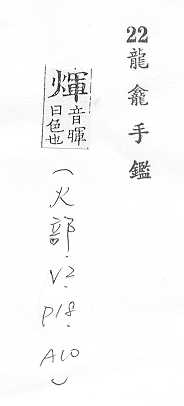 22
龍龕手鑑
煇
音暉
日色也
(火部.V2.P18.A10)